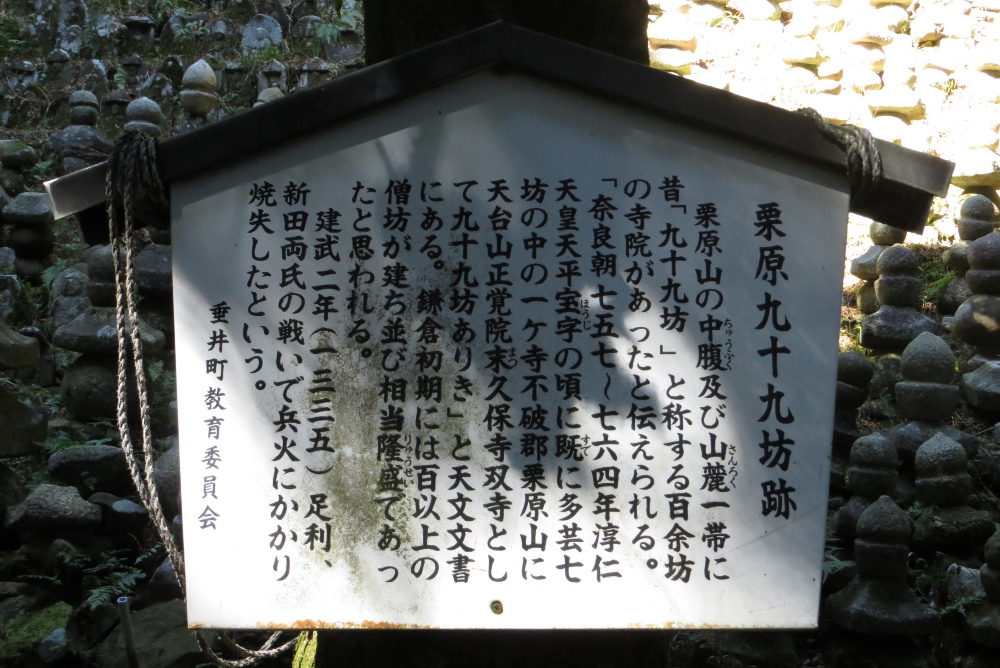 栗原九十九坊跡
栗原山の中腹及び山麓一帯に
昔「九十九坊」と称する百余坊
の寺院があったと伝えられる。
「奈良朝七五七～七六四年淳仁
天皇天平宝字の頃に既に多芸七
坊の中の一ケ寺不破郡栗原山に
天台山正覚院末久保寺双寺とし
て九十九坊ありき」と天文文書
にある。鎌倉初期には百以上の
僧坊が建ち並び相当隆盛であっ
たと思われる。
建武二年(一三三五)足利、
新田両氏の戦いで兵火にかかり
焼失したという。
垂井町教育委員会